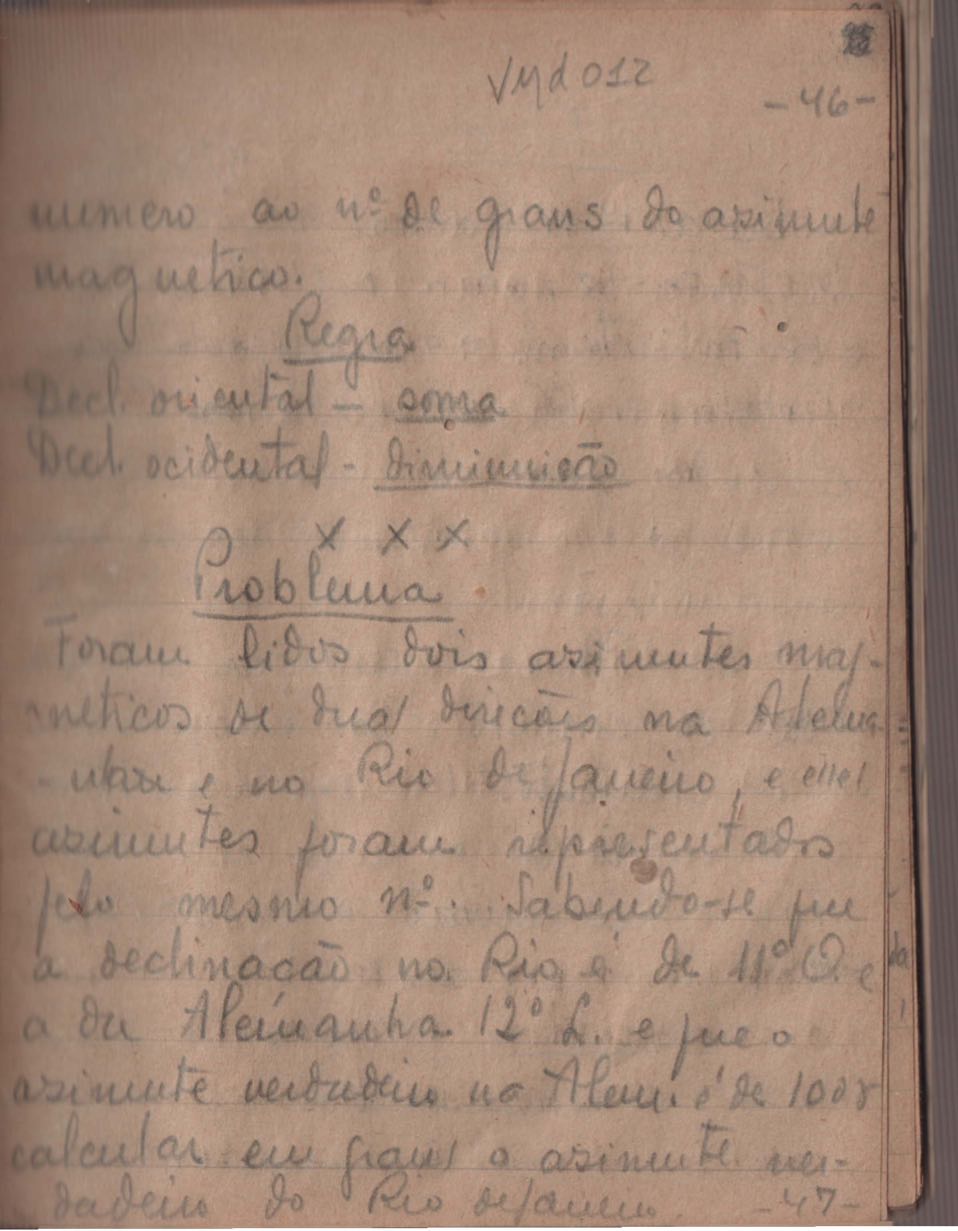 -46-
numero ao nº de graus do azimute
magnetico.
Regra
Decl. oriental - soma
Decl. ocidental - diminuição
x x x
Problema
Foram lidos dois azimutes mag-
neticos de duas direcões na Alema-
-nha e no Rio de Janeiro, e esses
azimutes foram representados
pelo mesmo nº. Sabendo-se que
a declinacão no Rio é de 11º O. e
a da Alemanha 12º L. e que o
azimute verdadeiro na Alem. é de
calcular em graus o azimute ver-
dadeiro do Rio de Janeiro. -47-